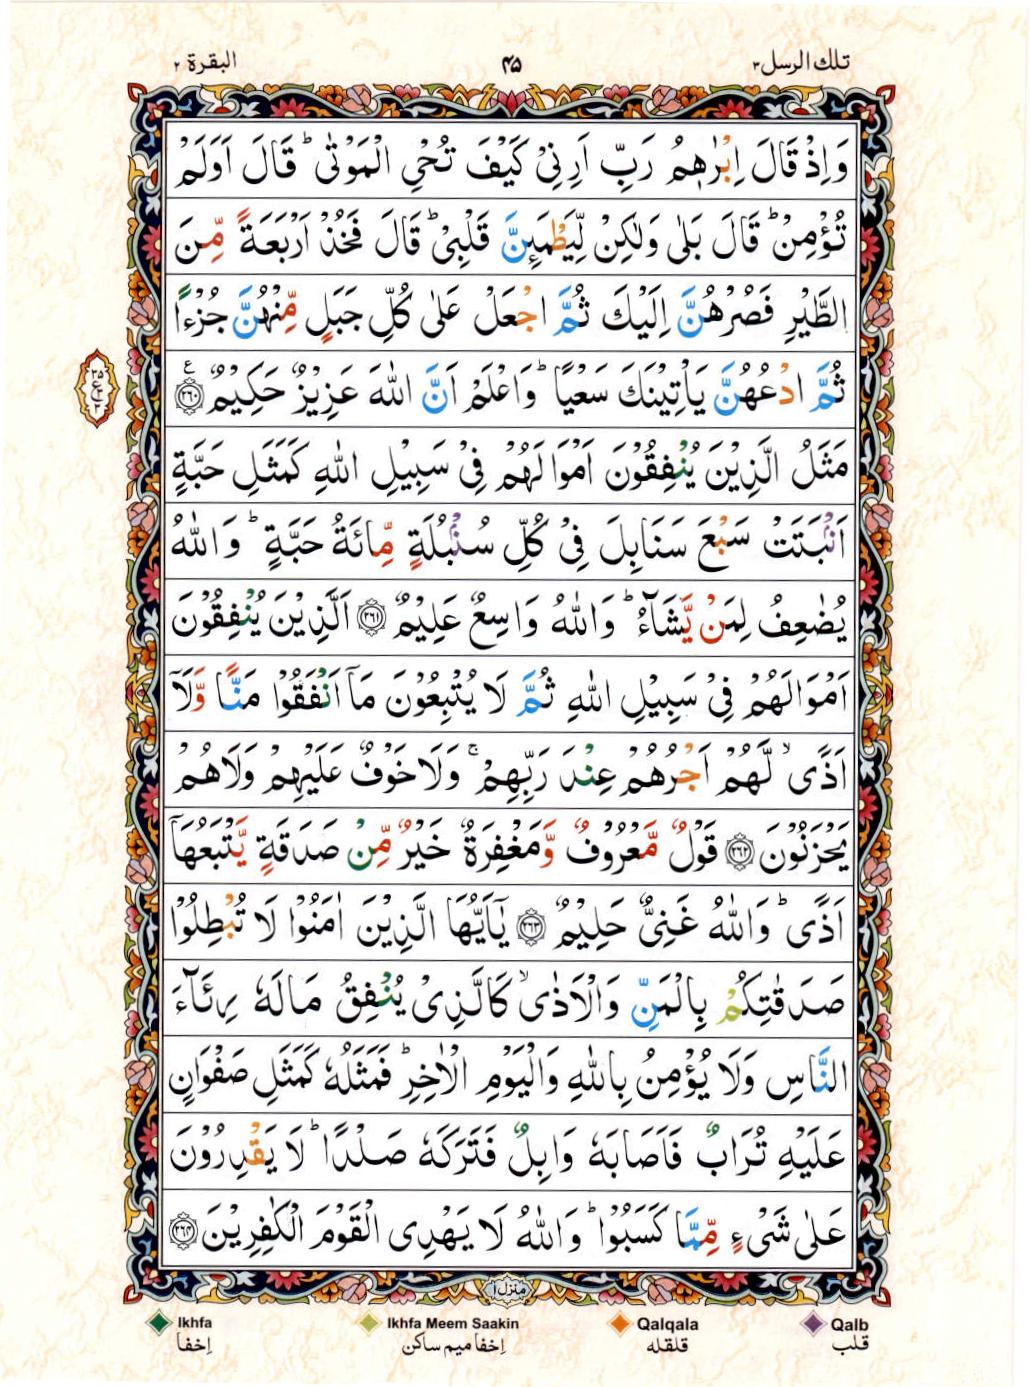 تلك الرسل ٣
۴۵
البقرة ٢
وَاِذۡ قَالَ اِبۡرٰهٖمُ رَبِّ اَرِنِىۡ كَيۡفَ تُحۡىِ الۡمَوۡتٰى‌ؕ قَالَ اَوَلَمۡ
تُؤۡمِنۡ‌ؕ قَالَ بَلٰى وَلٰـكِنۡ لِّيَطۡمَٮِٕنَّ قَلۡبِىۡ‌ؕ قَالَ فَخُذۡ اَرۡبَعَةً مِّنَ
الطَّيۡرِ فَصُرۡهُنَّ اِلَيۡكَ ثُمَّ اجۡعَلۡ عَلٰى كُلِّ جَبَلٍ مِّنۡهُنَّ جُزۡءًا
ثُمَّ ادۡعُهُنَّ يَاۡتِيۡنَكَ سَعۡيًا‌ؕ وَاعۡلَمۡ اَنَّ اللّٰهَ عَزِيۡزٌ حَكِيۡمٌ ﴿۲۶۰﴾ ع
٣٥
ع
٣
مَثَلُ الَّذِيۡنَ يُنۡفِقُوۡنَ اَمۡوَالَهُمۡ فِىۡ سَبِيۡلِ اللّٰهِ كَمَثَلِ حَبَّةٍ
اَنۡۢبَتَتۡ سَبۡعَ سَنَابِلَ فِىۡ كُلِّ سُنۡۢبُلَةٍ مِّائَةُ حَبَّةٍ‌ؕ وَاللّٰهُ
يُضٰعِفُ لِمَنۡ يَّشَآءُ‌ؕ وَاللّٰهُ وَاسِعٌ عَلِيۡمٌ ﴿۲۶۱﴾ اَلَّذِيۡنَ يُنۡفِقُوۡنَ
اَمۡوَالَهُمۡ فِىۡ سَبِيۡلِ اللّٰهِ ثُمَّ لَا يُتۡبِعُوۡنَ مَاۤ اَنۡفَقُوۡا مَنًّا وَّلَاۤ
اَذًىۙ لَّهُمۡ اَجۡرُهُمۡ عِنۡدَ رَبِّهِمۡ‌ۚ وَلَا خَوۡفٌ عَلَيۡهِمۡ وَلَا هُمۡ
يَحۡزَنُوۡنَ ﴿۲۶۲﴾ قَوۡلٌ مَّعۡرُوۡفٌ وَّمَغۡفِرَةٌ خَيۡرٌ مِّنۡ صَدَقَةٍ يَّتۡبَعُهَاۤ
اَذًى‌ؕ وَاللّٰهُ غَنِىٌّ حَلِيۡمٌ ﴿۲۶۳﴾ يٰۤاَيُّهَا الَّذِيۡنَ اٰمَنُوۡا لَا تُبۡطِلُوۡا
صَدَقٰتِكُمۡ بِالۡمَنِّ وَالۡاَذٰىۙ كَالَّذِىۡ يُنۡفِقُ مَالَهٗ رِئَآءَ
النَّاسِ وَلَا يُؤۡمِنُ بِاللّٰهِ وَالۡيَوۡمِ الۡاٰخِرِ‌ؕ فَمَثَلُهٗ كَمَثَلِ صَفۡوَانٍ
عَلَيۡهِ تُرَابٌ فَاَصَابَهٗ وَابِلٌ فَتَرَكَهٗ صَلۡدًا‌ؕ لَا يَقۡدِرُوۡنَ
عَلٰى شَىۡءٍ مِّمَّا كَسَبُوۡا‌ؕ وَاللّٰهُ لَا يَهۡدِى الۡقَوۡمَ الۡكٰفِرِيۡنَ ﴿۲۶۴﴾
منزل ١
Ikhfa Ikhfa Meem Saakin Qalqala Qalb
إخفا إخفا ميم ساكن قلقله قلب